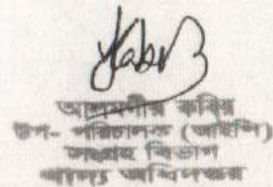 আলমগীর কবির
উপ- পরিচালক (আইসি)
সংগ্রহ বিভাগ
খাদ্য অধিদপ্তর